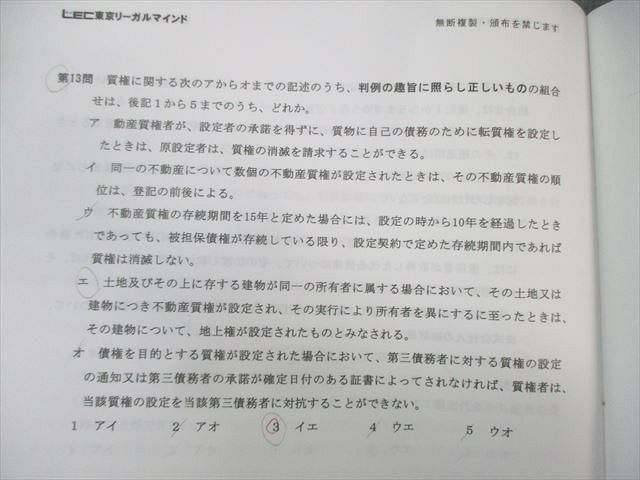 LEC東京リーガルマインド
無断複製・頒布を禁じます
第13問　質権に関する次のアからオまでの記述のうち、判例の趣旨に照らし正しいものの組合
せは、後記１から５までのうち、どれか。
ア　動産質権者が、設定者の承諾を得ずに、質物に自己の債務のために転質権を設定し
たときは、原設定者は、質権の消滅を請求することができる。
イ　同一の不動産について数個の不動産質権が設定されたときは、その不動産質権の順
位は、登記の前後による。
ウ　不動産質権の存続期間を15年と定めた場合には、設定の時から10年を経過したとき
であっても、被担保債権が存続している限り、設定契約で定めた存続期間内であれば
質権は消滅しない。
エ　土地及びその上に存する建物が同一の所有者に属する場合において、その土地又は
建物につき不動産質権が設定され、その実行により所有者を異にするに至ったときは、
その建物について、地上権が設定されたものとみなされる。
オ　債権を目的とする質権が設定された場合において、第三債務者に対する質権の設定
の通知又は第三債務者の承諾が確定日付のある証書によってされなければ、質権者は、
当該質権の設定を当該第三債務者に対抗することができない。
１　アイ　２　アオ　３　イエ　４　ウエ　５　ウオ